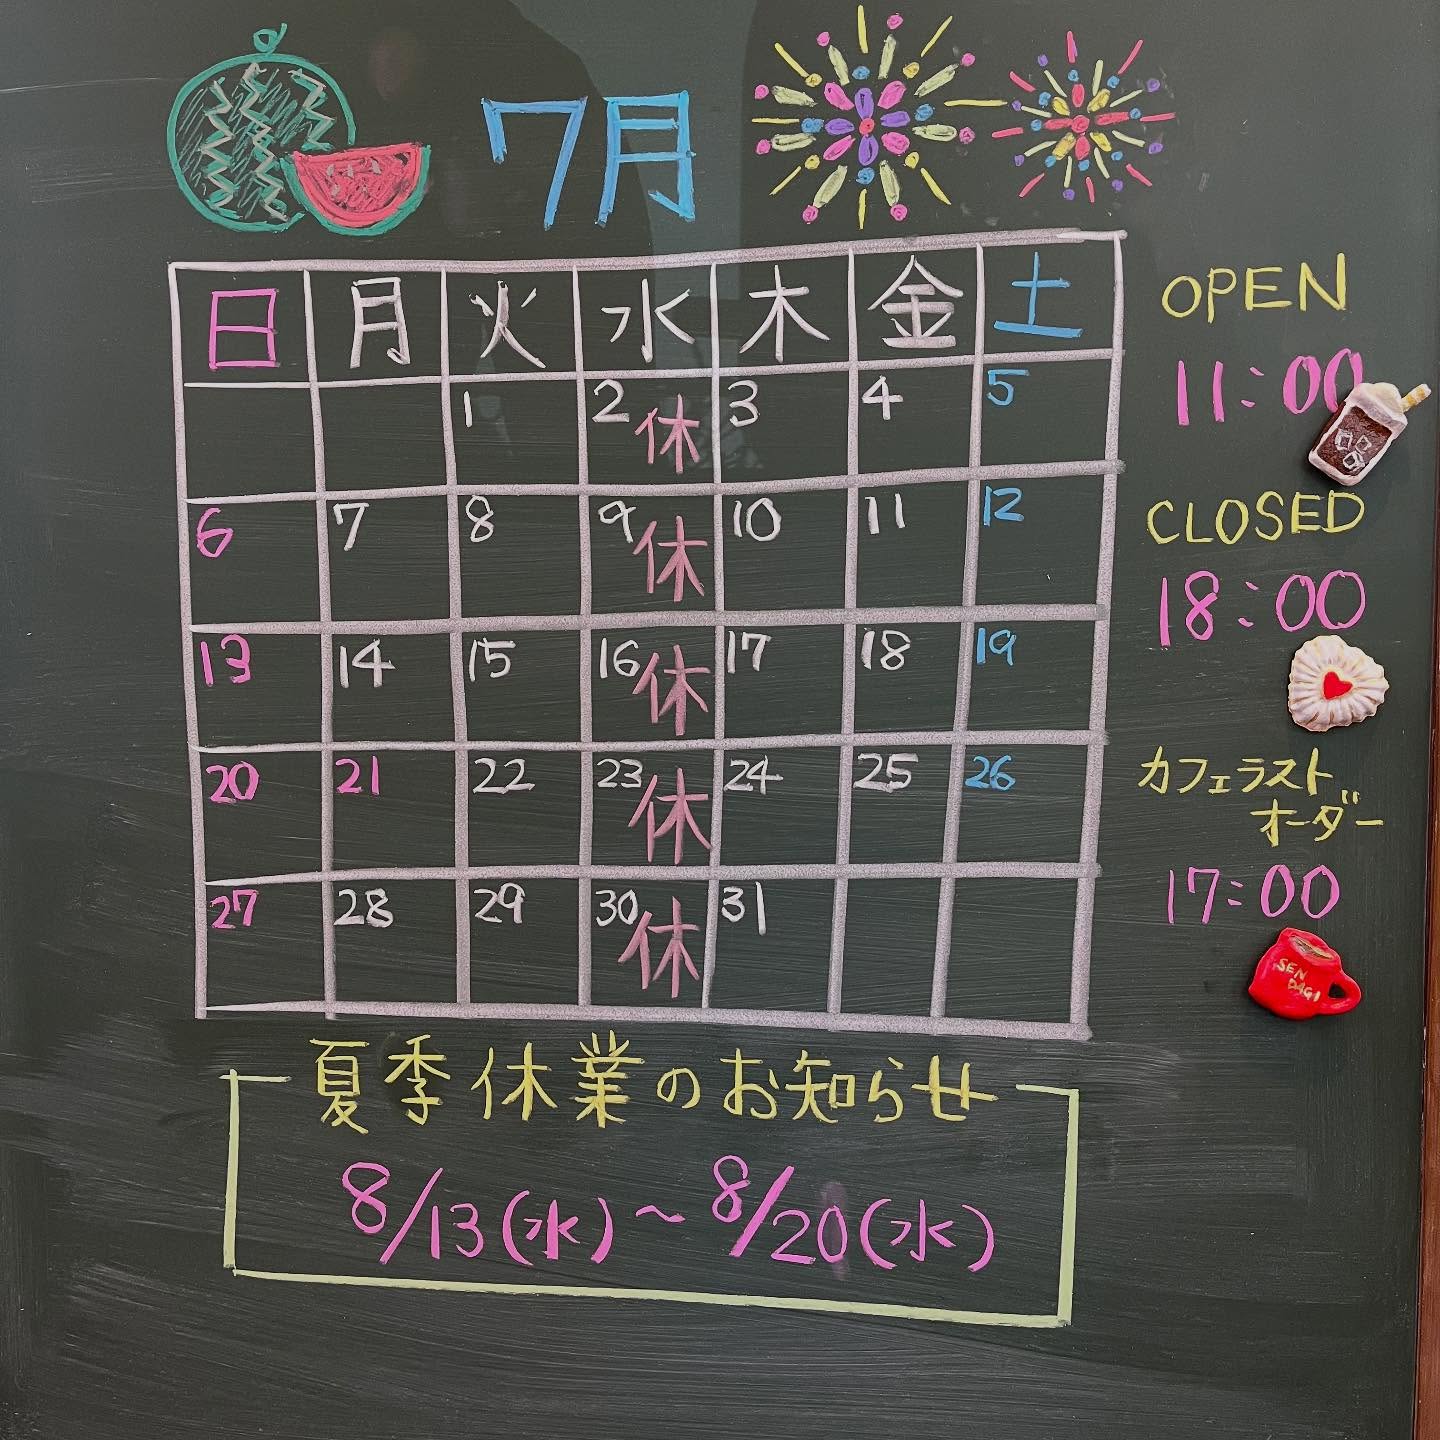 7月
日 月 火 水 木 金 土
1 2 休 3 4 5
6 7 8 9 休 10 11 12
13 14 15 16 休 17 18 19
20 21 22 23 休 24 25 26
27 28 29 30 休 31
OPEN
11:00
CLOSED
18:00
カフェラスト
オーダー
17:00
SEN
DAGI
夏季休業のお知らせ
8/13(水)~8/20(水)